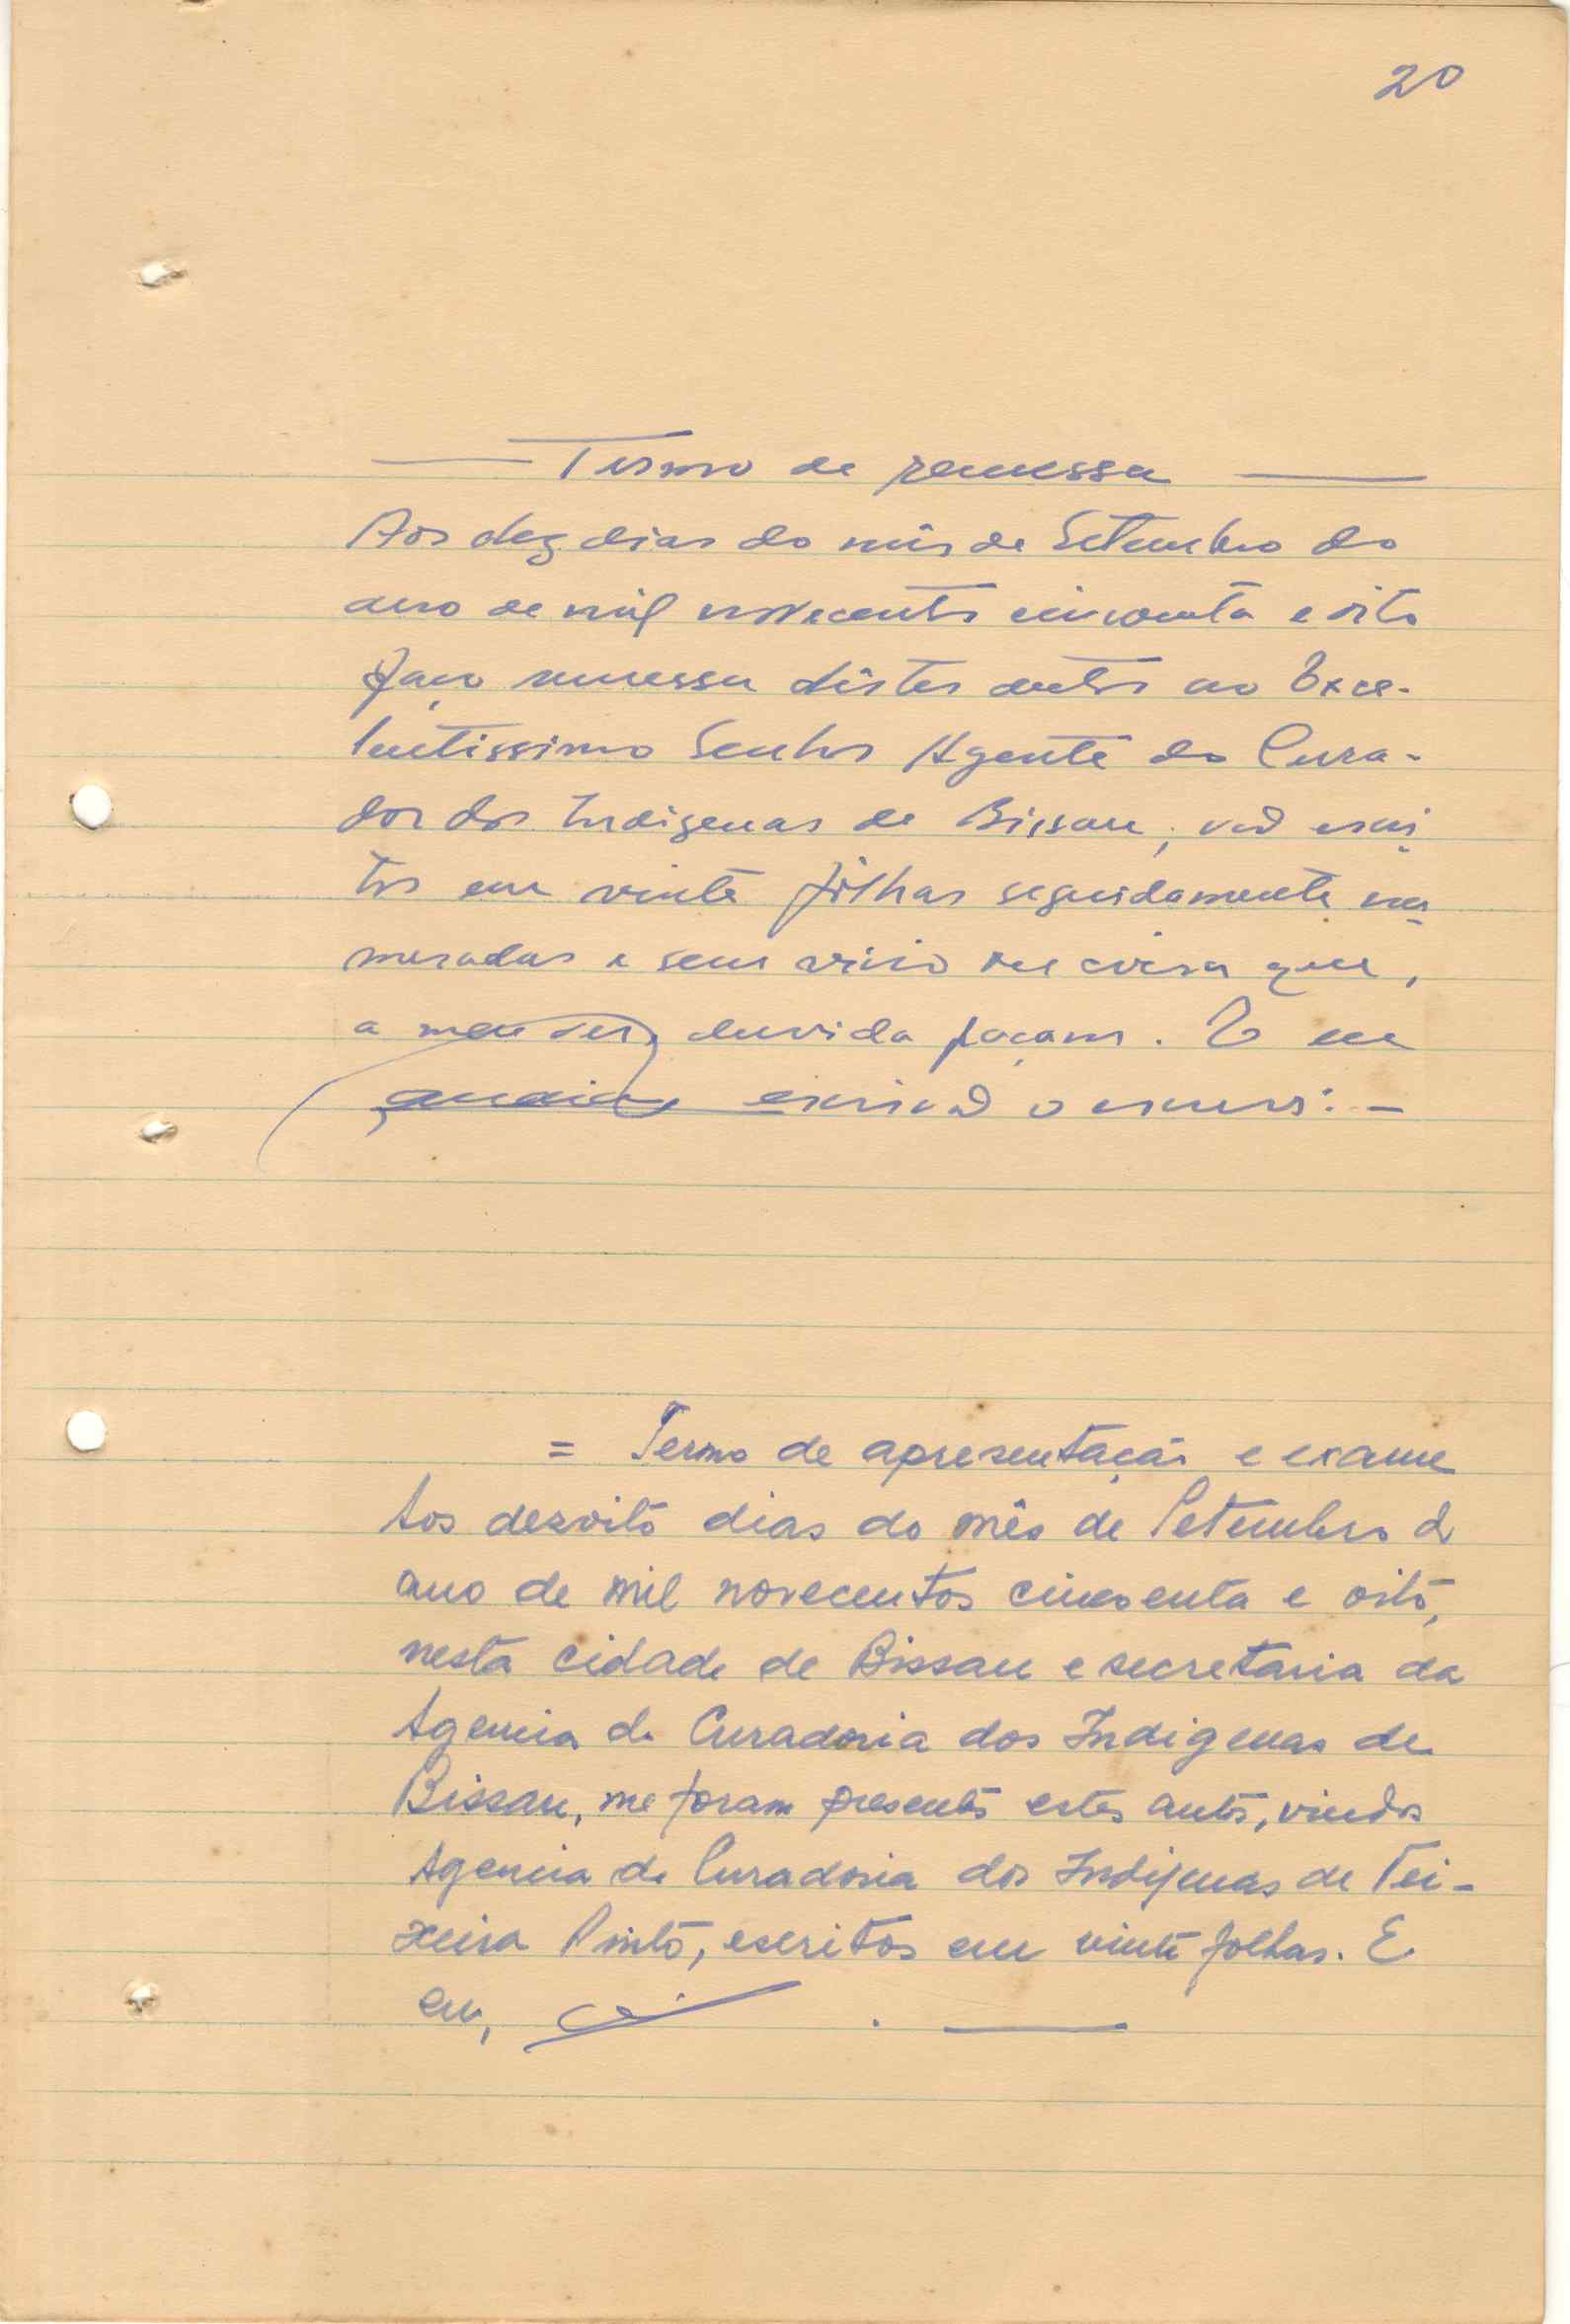 20
Termo de remessa
Aos dez dias do mês de Setembro do
ano de mil novecentos cincoenta e oito
faço remessa dêstes autos ao Exce-
lentissimo Senhor Agente do Cura-
dor dos Indigenas de Bissau, vão escri
tos em vinte fôlhas seguidamente nu
meradas e sem vicio ou coisa que,
a meu ver, duvida façam. E eu
escrivão o escrevi: -
= Termo de apresentação e exame
Aos dezoito dias do mês de Setembro d
ano de mil novecentos cincoenta e oito,
nesta cidade de Bissau e secretaria da
Agencia da Curadoria dos Indigenas de
Bissau, me foram presentes estes autos, vindos
Agencia da Curadoria dos Indigenas de Tei-
xeira Pinto, escritos em vinte folhas. E
eu,